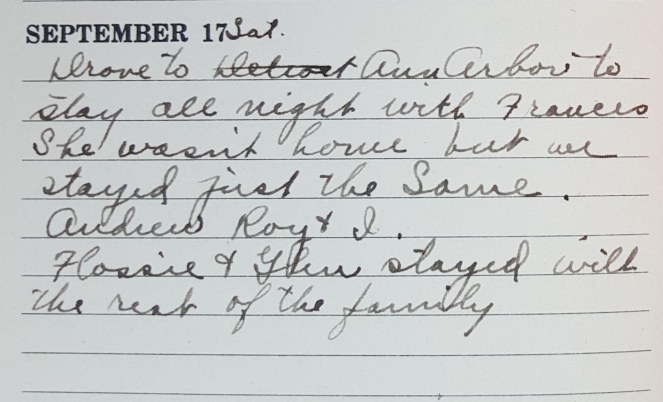 SEPTEMBER 17 Sat.
Drove to Detroit Ann Arbor to
stay all night with Frances
She wasn't home but we
stayed just the same.
Andrew Roy & I.
Flossie & Glen stayed with
the rest of the family